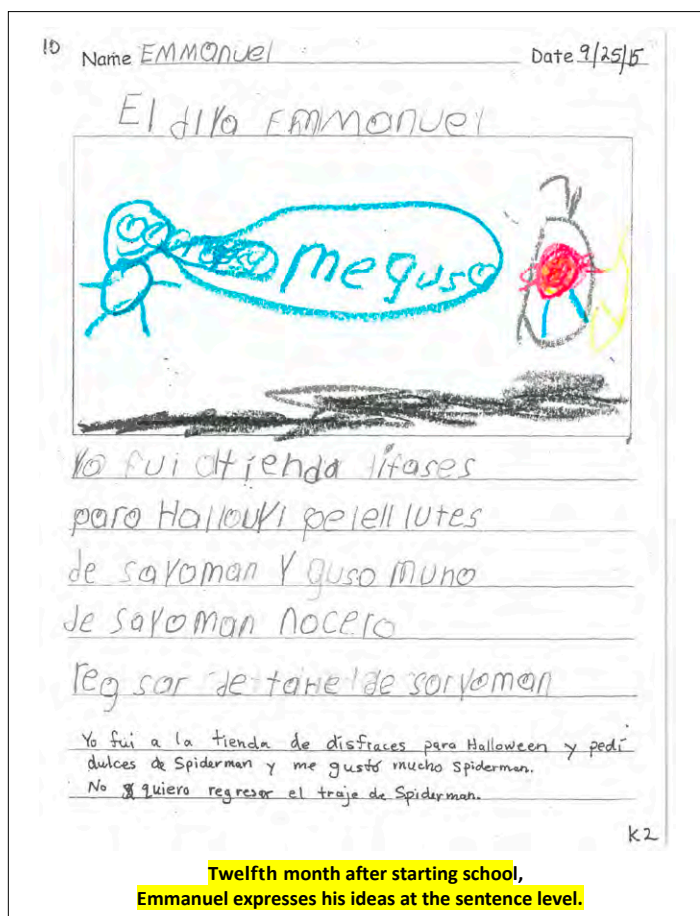 10 Name EMMANUEL Date 9/25/15
El diYa EMMANUEL
me guso
Yo fui at tienda difases
para HallouYi pelell lutes
de saYoman Y guso muno
de saYoman nocero
reg sar de
de sorYoman
Yo fui a la tienda de disfraces para Halloween y pedí
dulces de Spiderman y me gustó mucho Spiderman.
No quiero regresar el traje de Spiderman.
K2
Twelfth month after starting school,
Emmanuel expresses his ideas at the sentence level.